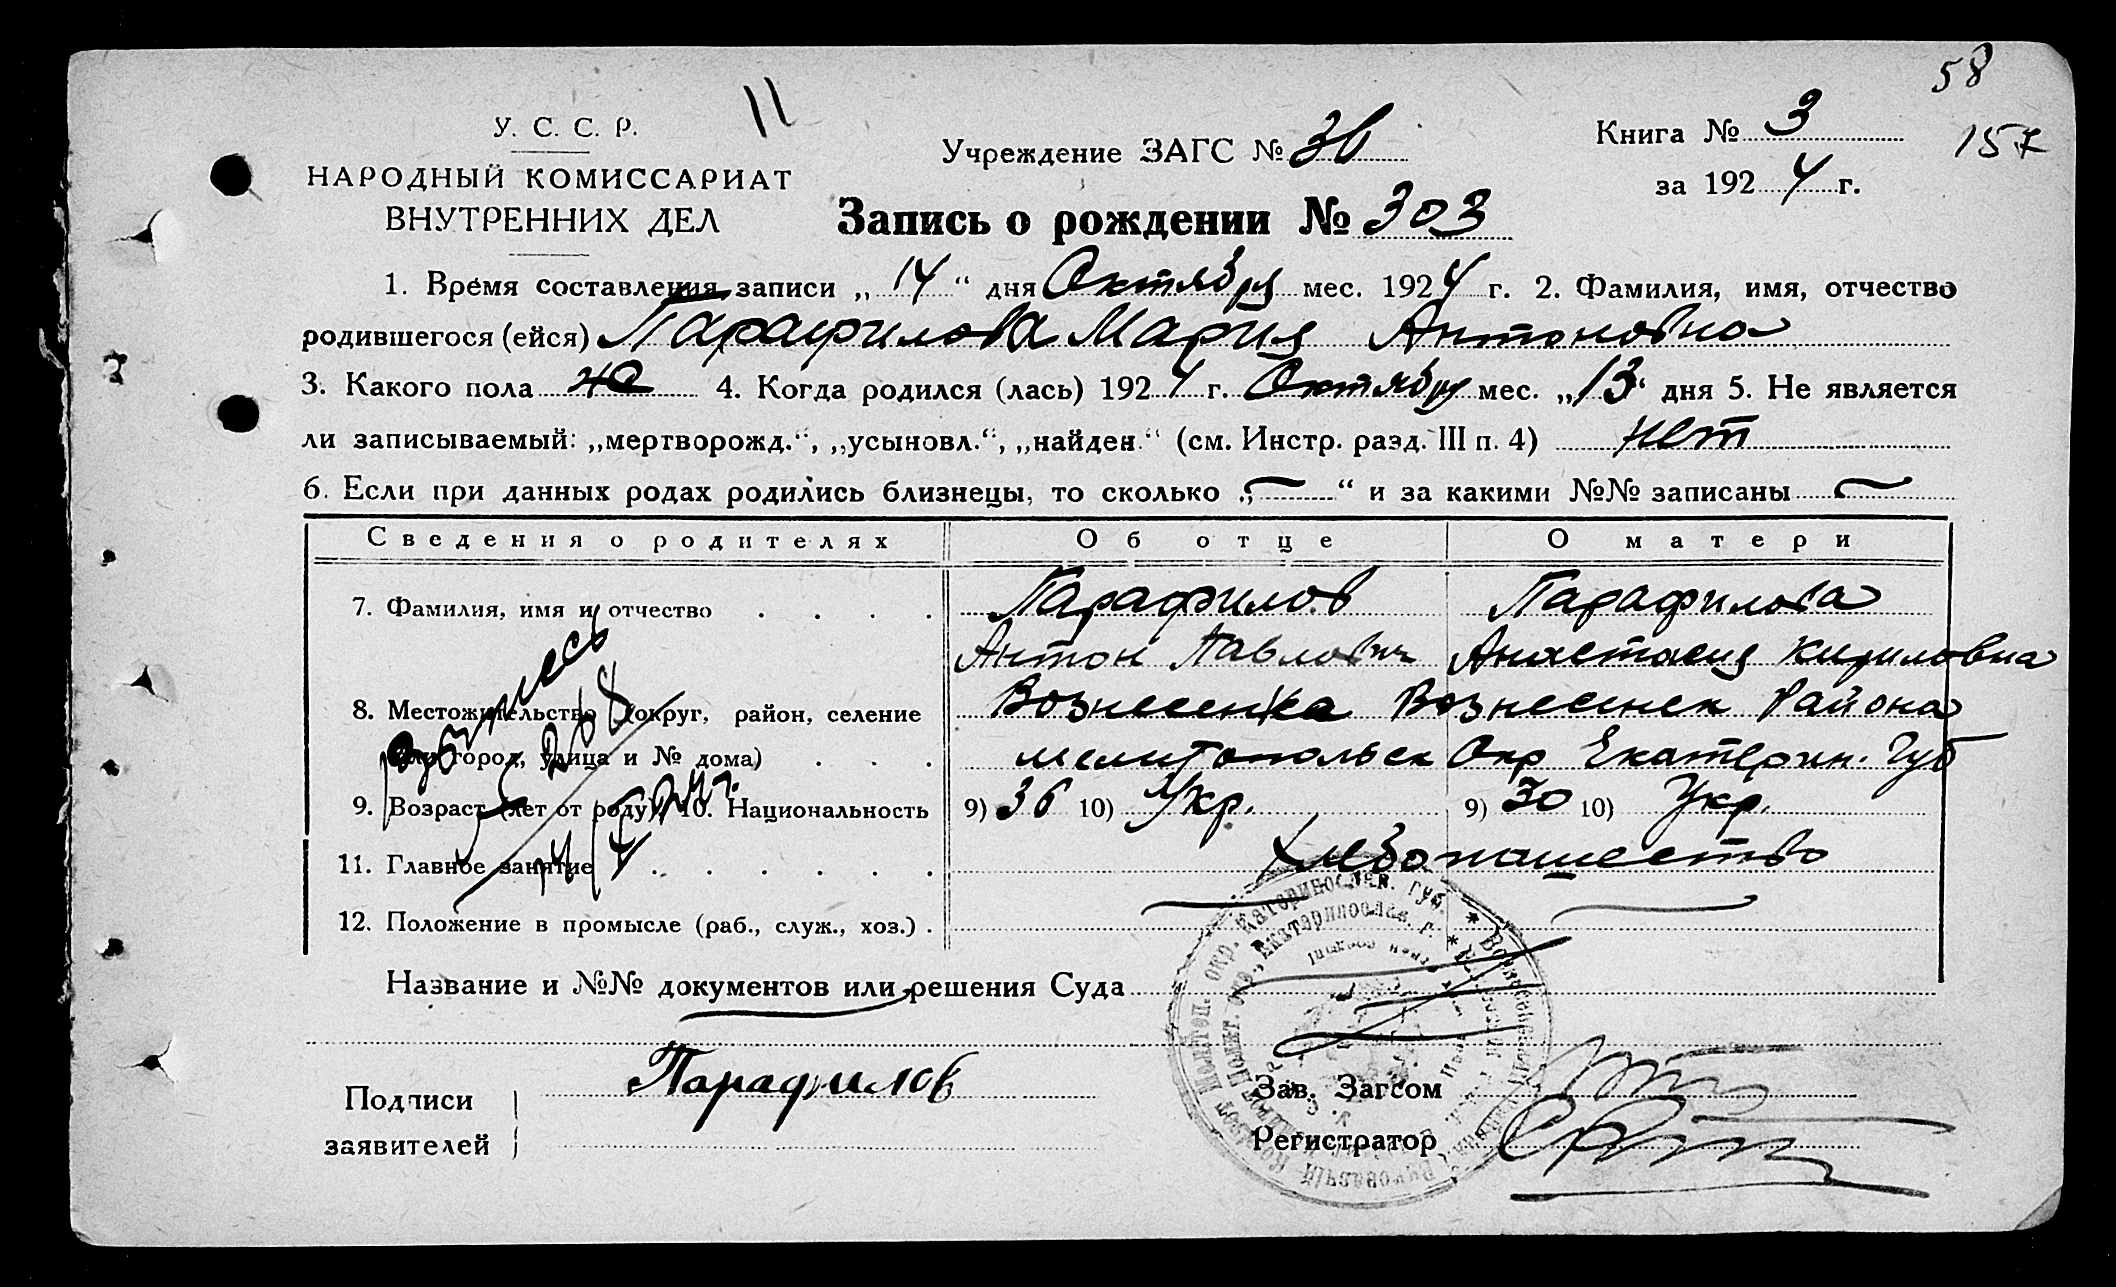 58
У. С. С. Р.
11
Учреждение ЗАГС №
Книга № 3
157
НАРОДНЫЙ КОМИССАРИАТ
за 1924 г.
ВНУТРЕННИХ ДЕЛ
Запись о рождении № 303
1. Время составления записи „14“ дня Октября мес. 1924 г. 2. Фамилия, имя, отчество
родившегося (ейся) Парафилова Мария Антоновна
3. Какого пола 4. Когда родился (лась) 1924 г. Октября мес. „13“ дня 5. Не является
ли записываемый: „мертворожд.“, „усыновл.“, „найден.“ (см. Инстр. разд. III п. 4) нет
6. Если при данных родах родились близнецы, то сколько „—“ и за какими №№ записаны —
Сведения о родителях Об отце О матери
7. Фамилия, имя и отчество . . . . Парафилов Парафилова
Антон Павлович Анастасия Кириловна
8. Местожительство (округ, район, селение Вознесенка Вознесенск Района
(или город, улица и № дома) . . . Мелитопольск Окр Екатерин. Губ
9. Возраст (лет от роду) 10. Национальность 9) 36 10) Укр. 9) 30 10) Укр.
11. Главное занятие . . . . . . Хлебопашество
12. Положение в промысле (раб., служ., хоз.) .
Название и №№ документов или решения Суда
Подписи
заявителей
Парафилов
Зав. Загсом
Регистратор